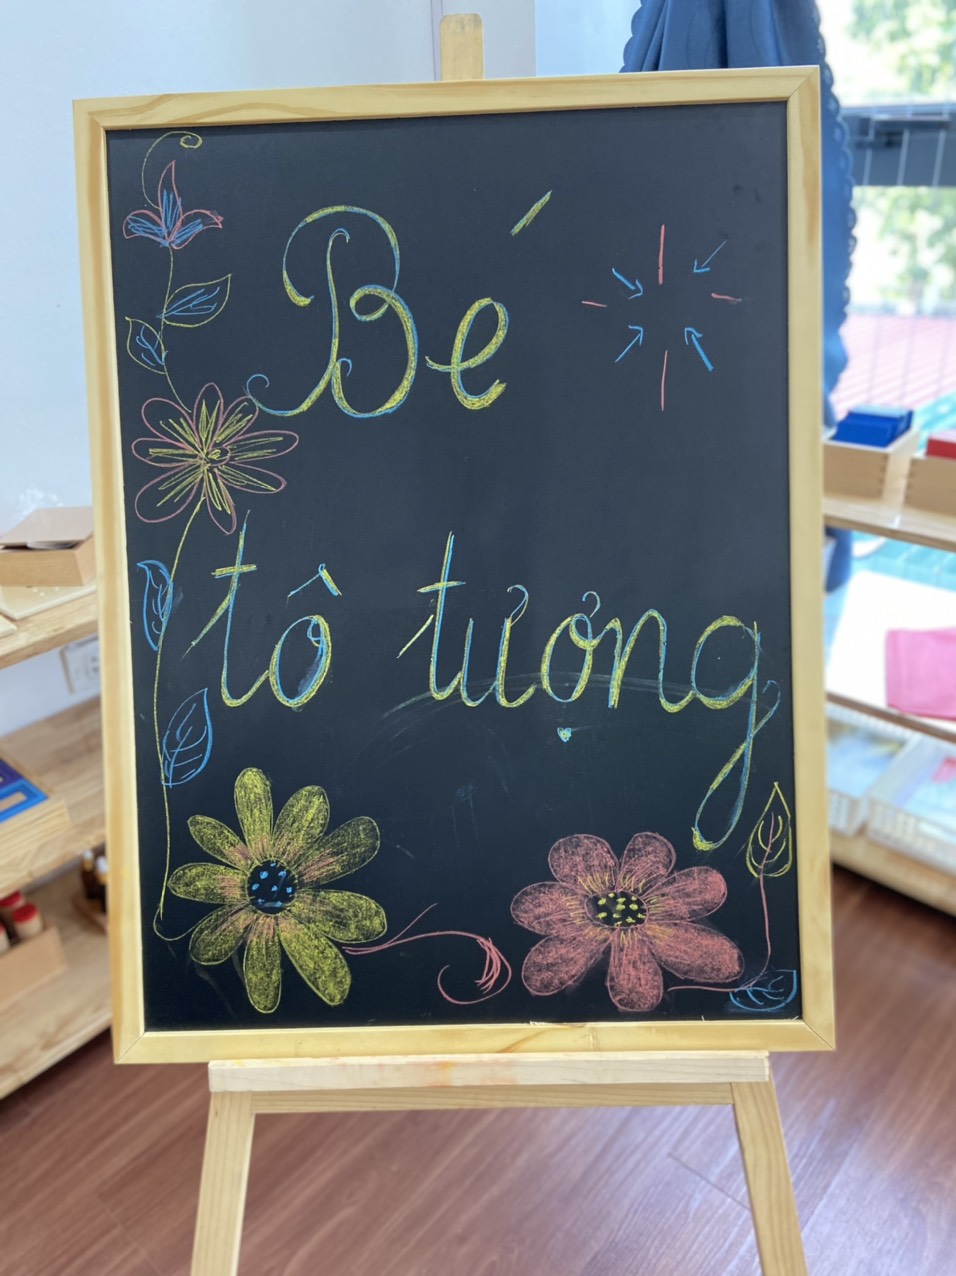 Bé
tô tượng